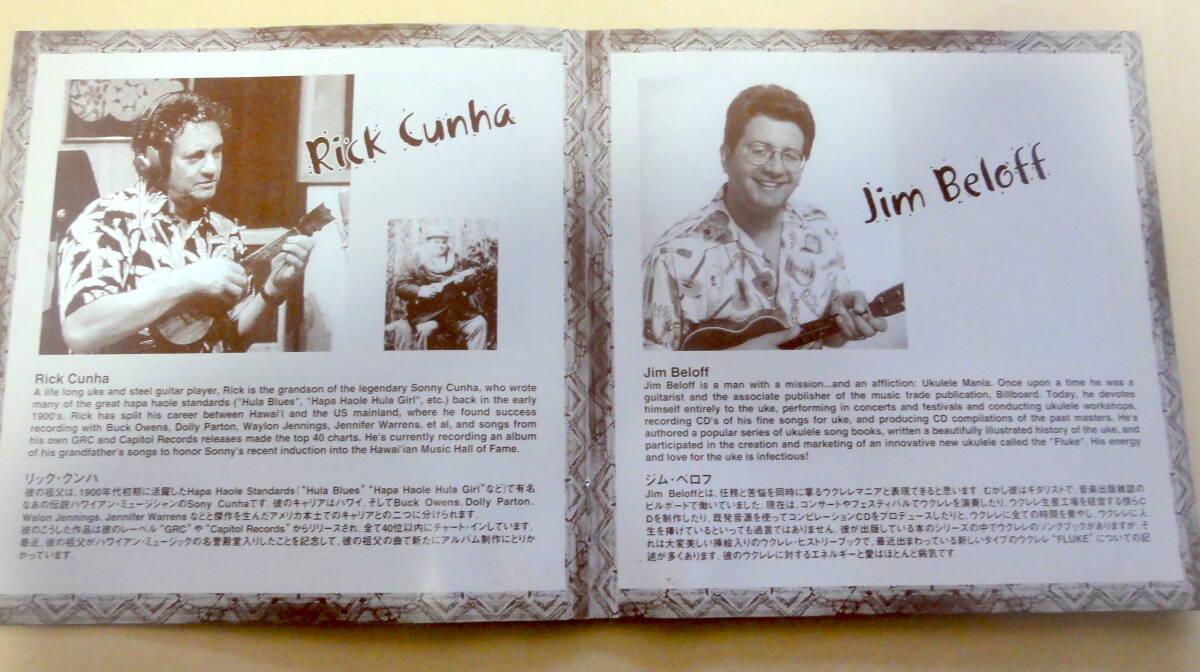 Rick Cunha
Rick Cunha
A life long uke and steel guitar player, Rick is the grandson of the legendary Sonny Cunha, who wrote
many of the great hapa haole standards ("Hula Blues", "Hapa Haole Hula Girl", etc.) back in the early
1900's. Rick has split his career between Hawai'i and the US mainland, where he found success
recording with Buck Owens, Dolly Parton, Waylon Jennings, Jennifer Warrens, et al, and songs from
his own GRC and Capitol Records releases made the top 40 charts. He's currently recording an album
of his grandfather's songs to honor Sonny's recent induction into the Hawai'ian Music Hall of Fame.
リック・クンハ
彼の祖父は、1900年代初期に活躍したHapa Haole Standards("Hula Blues" "Hapa Haole Hula Girl"など)で有名
なあの伝説ハワイアン・ミュージシャンのSony Cunhaです。彼のキャリアはハワイ、そしてBuck Owens, Dolly Parton,
Walon Jennings, Jennifer Warrens などと傑作を生んだアメリカ本土でのキャリアとの二つに分けられます。
彼のこうした作品は彼のレーベル"GRC"や"Capitol Records"からリリースされ、全て40位以内にチャート・インしています。
最近、彼の祖父がハワイアン・ミュージックの名誉殿堂入りしたことを記念して、彼の祖父の曲で新たにアルバム制作にとりか
かっています。
Jim Beloff
Jim Beloff
Jim Beloff is a man with a mission...and an affliction: Ukulele Mania. Once upon a time he was a
guitarist and the associate publisher of the music trade publication, Billboard. Today, he devotes
himself entirely to the uke, performing in concerts and festivals and conducting ukulele workshops,
recording CD's of his fine songs for uke, and producing CD compilations of the past masters. He's
authored a popular series of ukulele song books, written a beautifully illustrated history of the uke, and
participated in the creation and marketing of an innovative new ukulele called the "Fluke". His energy
and love for the uke is infectious!
ジム・ベロフ
Jim Beloffとは、任務と苦悩を同時に掌るウクレレマニアと表現できると思います。むかし彼はギタリストで、音楽出版雑誌の
ビルボードで働いていました。現在は、コンサートやフェスティバルでウクレレを演奏したり、ウクレレ生産工場を経営する傍らC
Dを制作したり、既発音源を使ってコンピレーションCDをプロデュースしたりと、ウクレレに全ての時間を費やし、ウクレレに人
生を捧げているといっても過言ではありません。彼が出版している本のシリーズの中でウクレレのソングブックがありますが、そ
れは大変美しい挿絵入りのウクレレ・ヒストリーブックで、最近出まわっている新しいタイプのウクレレ"FLUKE"についての記
述が多くあります。彼のウクレレに対するエネルギーと愛はほとんど病気です。